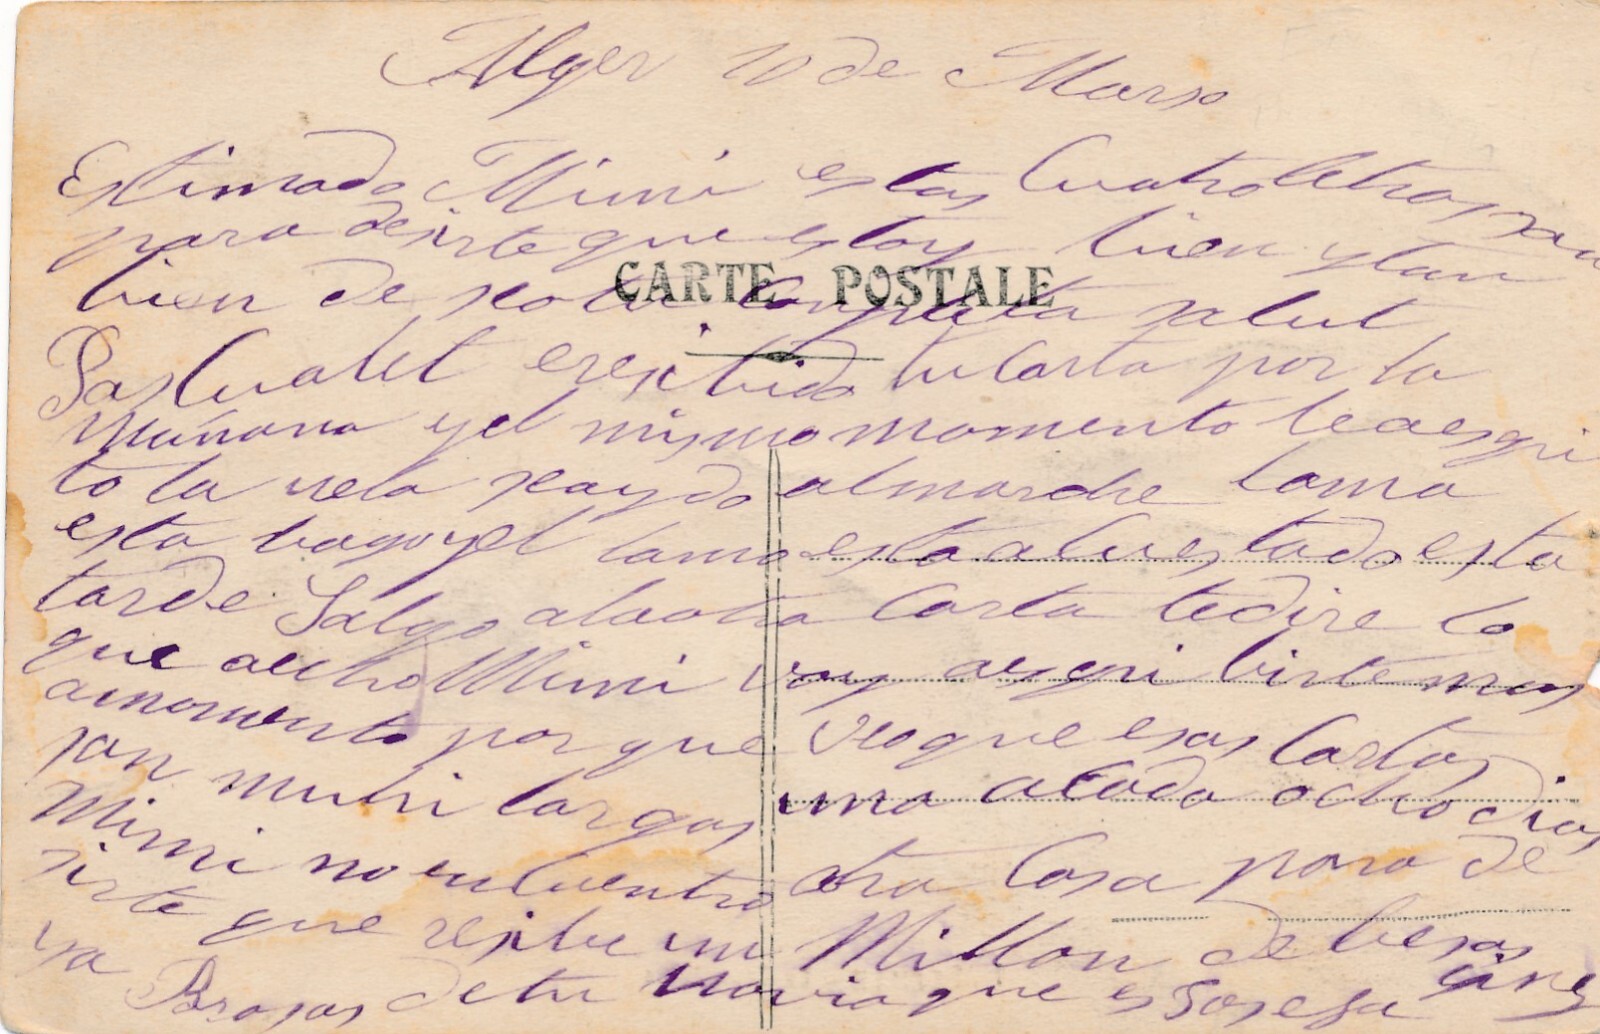 Alger 10 de Marso
Estimado Mimi estas Cuatro letras san
para desirte que estoy bien y tan
bien de
CARTE POSTALE
salut
Pascualet e resibido tu Carta por la
mañana y el mismo momento te a esqri
to la vela seaydo al marche lama
esta y el lamo esta
tarde Salgo ala otra Carta tedire lo
que aecho Mimi voy a esqribirte mas
amomento por que veo que esas Cartas
son mui largas una acada ocho dias
Mimi no encuentro otra Cosa para de
sirte que resibe un Millon de besos
ya Brasos de tu novia que es Josefa